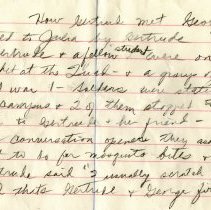 How Gertrude met Geo
ed to Julia by Gertrude
ertrude & a fellow student were on
at the - & a group
war 1 - soldiers were stati
campus & 2 of them stopped
to Gertrude & her friend -
conversation opener they as
to do for mosquito bites &
trude said "I usually scratch
thats Gertrude & George fir